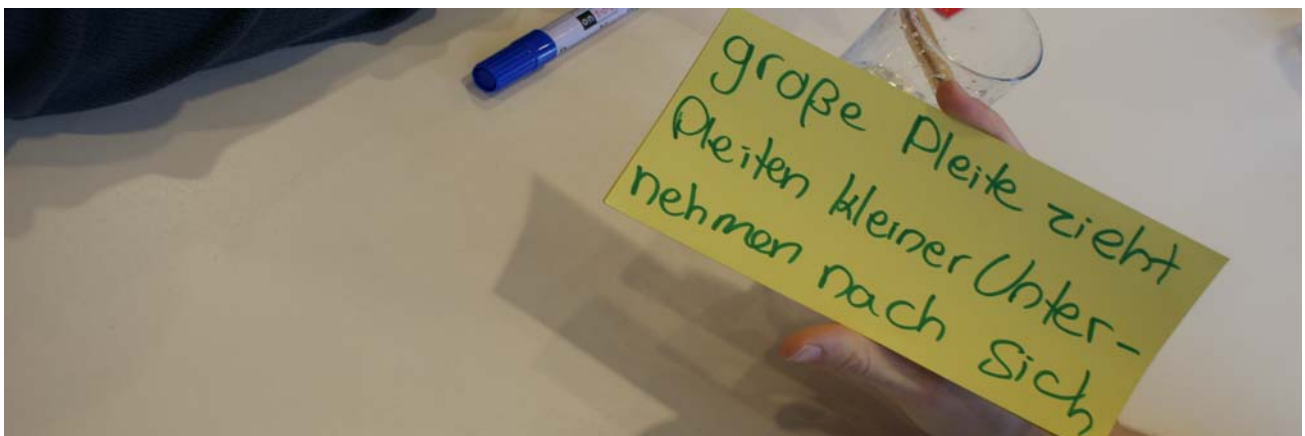 große Pleite zieht
Pleiten kleiner Unter-
nehmen nach sich